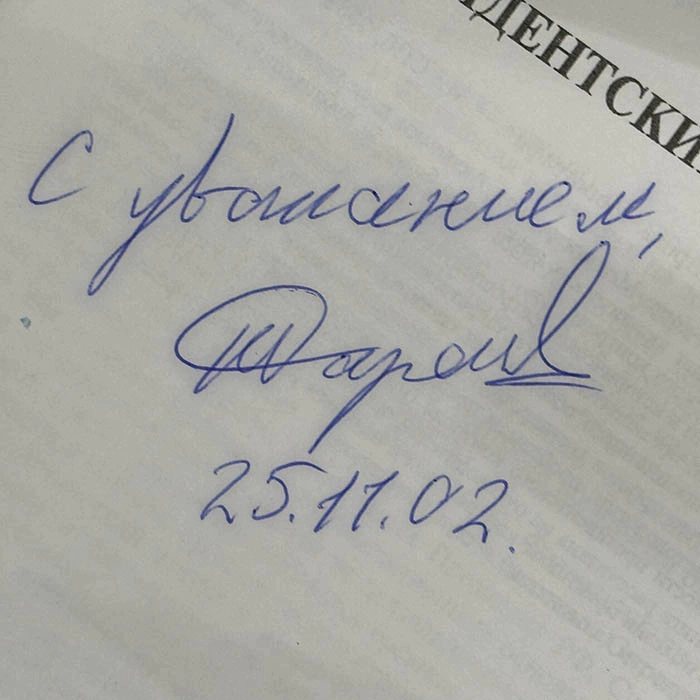 ДЕНТСКИ
С уважением,
25.11.02.